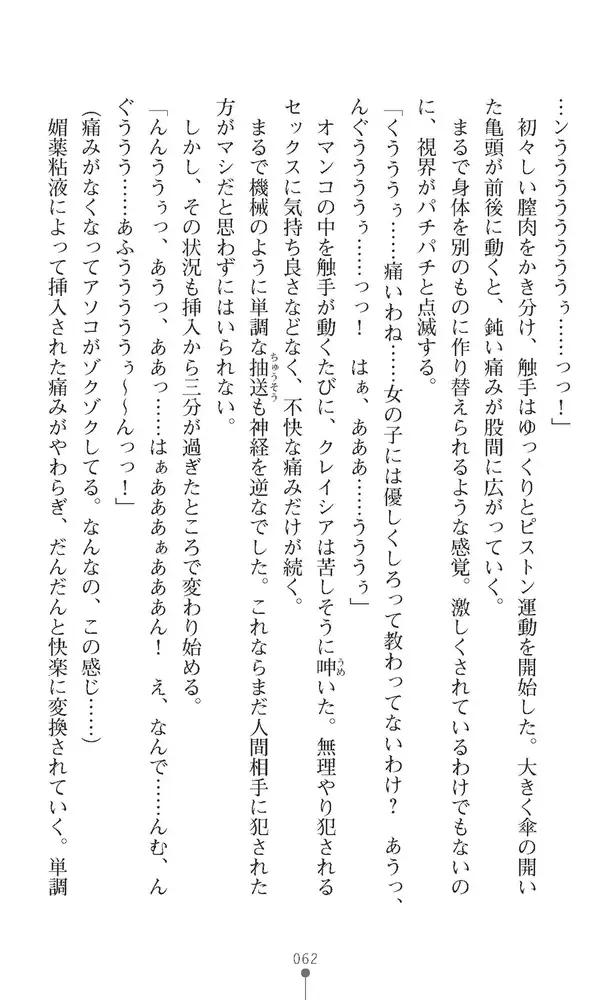 …ンううううううううぅ……っっ！」
初々しい膣肉をかき分け、触手はゆっくりとピストン運動を開始した。大きく傘の開い
た亀頭が前後に動くと、鈍い痛みが股間に広がっていく。
まるで身体を別のものに作り替えられるような感覚。激しくされているわけでもないの
に、視界がパチパチと点滅する。
「くうううぅ……痛いわね……女の子には優しくしろって教わってないわけ？　あうっ、
んぐうううぅ……っっ！　はぁ、あああ……うううぅ」
オマンコの中を触手が動くたびに、クレイシアは苦しそうに呻いた。無理やり犯される
セックスに気持ち良さなどなく、不快な痛みだけが続く。
まるで機械のように単調な抽送も神経を逆なでした。これならまだ人間相手に犯された
方がマシだと思わずにはいられない。
しかし、その状況も挿入から三分が過ぎたところで変わり始める。
「んんううぅっ、あうっ、ああっ……はぁあああぁあああん！　え、なんで……んむ、ん
ぐううう……あふうううううぅ～～んっっ！」
（痛みがなくなってアソコがゾクゾクしてる。なんなの、この感じ……）
媚薬粘液によって挿入された痛みがやわらぎ、だんだんと快楽に変換されていく。単調
062